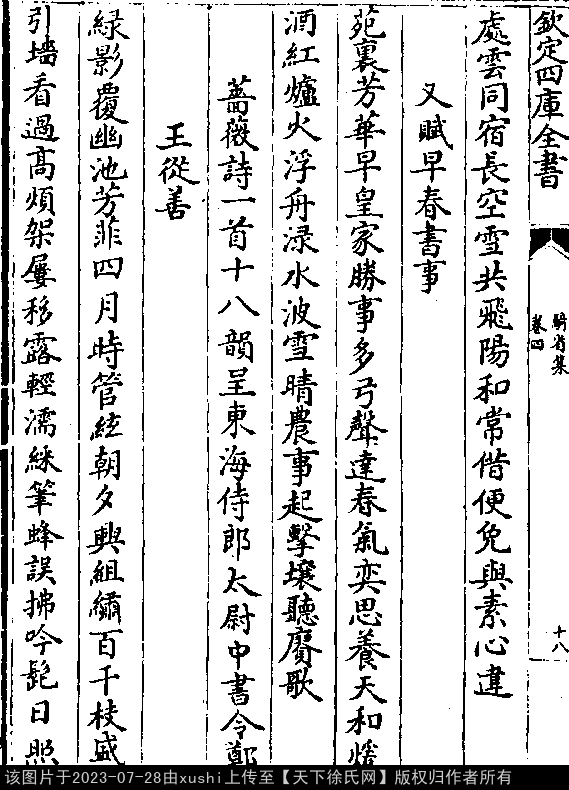 欽定四庫全書
騎省集
卷四
十八
處雲同宿長空雪共飛陽和常借便免與素心違
又賦早春書事
苑裏芳華早皇家勝事多弓聲達春氣奕思養天和煖
酒紅爐火浮舟渌水波雪晴農事起擊壤聽賡歌
薔薇詩一首十八韻呈東海侍郎太尉中書令鄭
王從善
緑影覆幽池芳菲四月時管絃朝夕興組繡百千枝盛
引墻看過髙煩架屢移露輕濡綵筆蜂誤拂吟髭日照
该图片于2023-07-28由xushi上传至【天下徐氏网】版权归作者所有